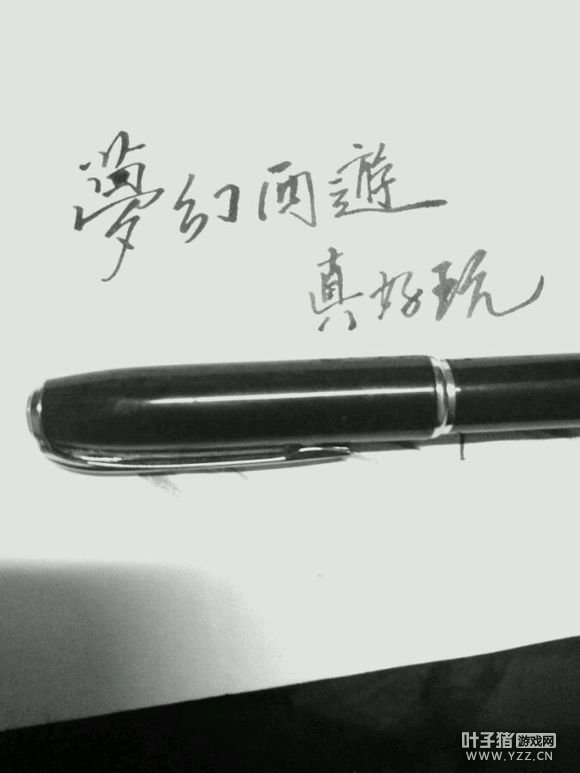 夢幻西遊
真好玩
叶子猪游戏网
www.YZZ.CN